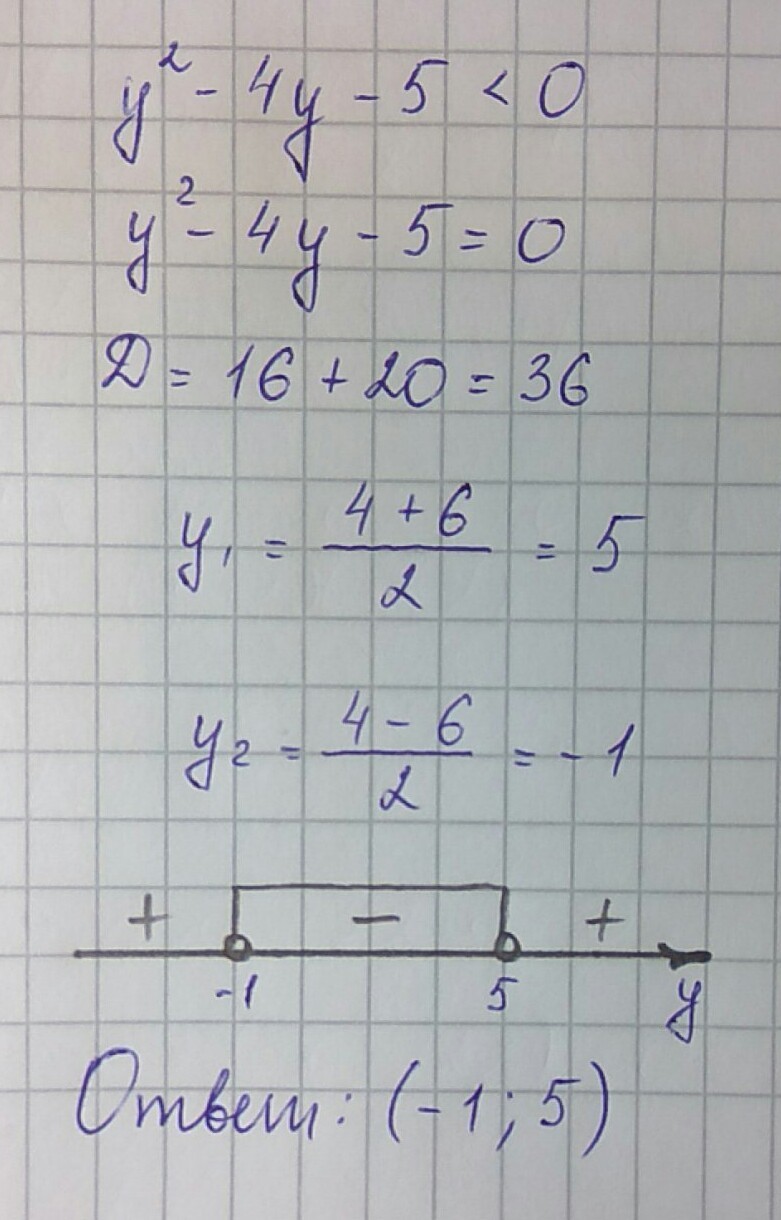 y² - 4y - 5 < 0
y² - 4y - 5 = 0
D = 16 + 20 = 36
y₁ = (4 + 6)/2 = 5
y₂ = (4 - 6)/2 = -1
+ - +
-1 5 y
Ответ: (-1; 5)